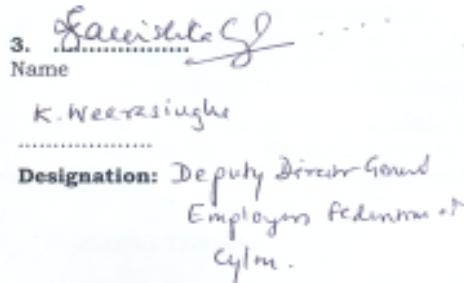 3. ....................
Name
K. Weerasinghe
...................
Designation: Deputy Director General
Employers Federation of
Cylon.